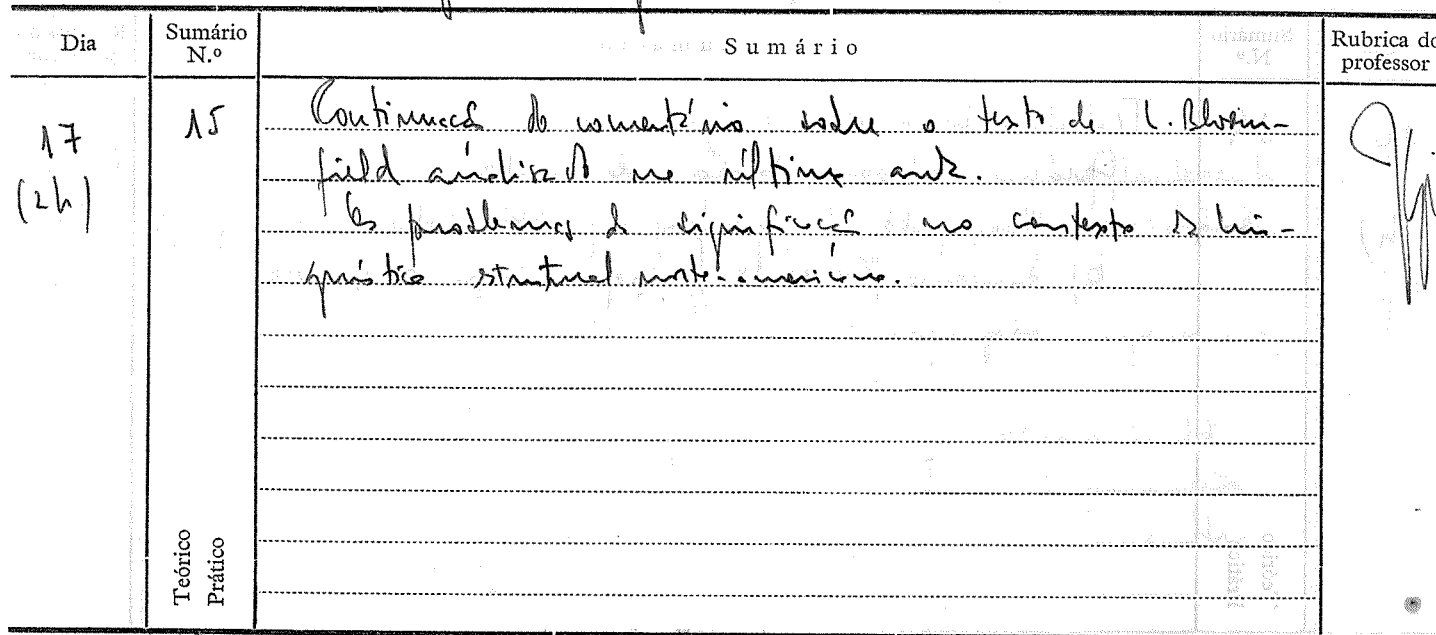 Dia
Sumário
N.º
Sumário
Rubrica do
professor
17
(2h)
15
Continuação do comentário sobre o texto de L. Bloom-
field analisado na última aula.
Os problemas da significação no contexto da lin-
guística estrutural norte-americana.
Teórico
Prático